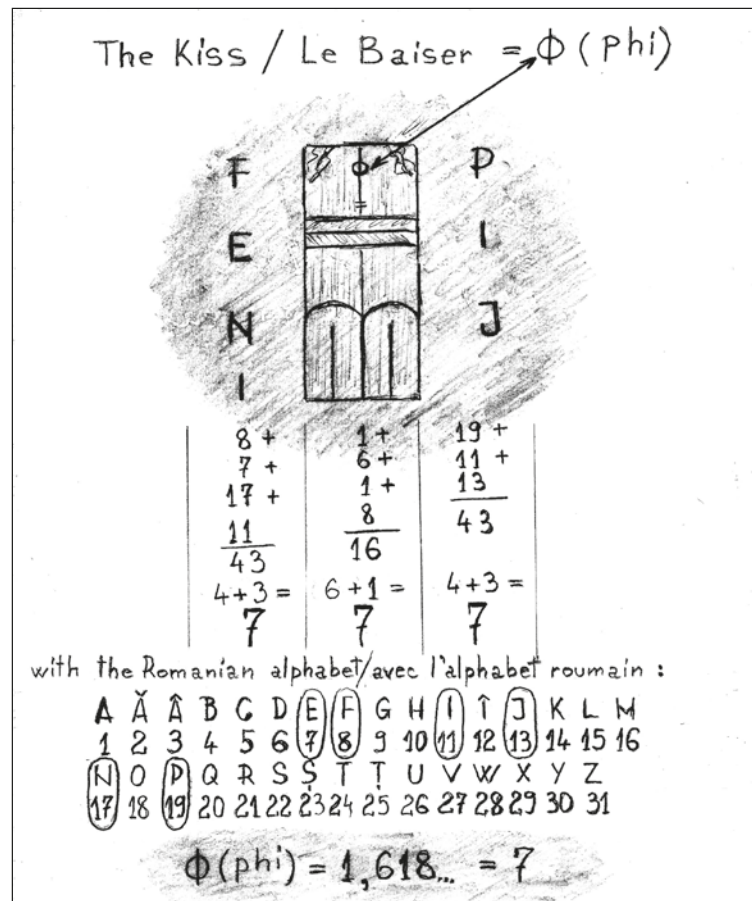 The Kiss / Le Baiser = Φ (phi)
F P
E I
N J
I
8 + 1 + 19 +
7 + 6 + 11 +
17 + 1 + 13
11 8 43
43 16
4+3 = 6+1 = 4+3 =
7 7 7
with the Romanian alphabet/avec l'alphabet roumain :
A Ă Â B C D E F G H I Î J K L M
1 2 3 4 5 6 7 8 9 10 11 12 13 14 15 16
N O P Q R S Ș T Ț U V W X Y Z
17 18 19 20 21 22 23 24 25 26 27 28 29 30 31
Φ (phi) = 1,618... = 7